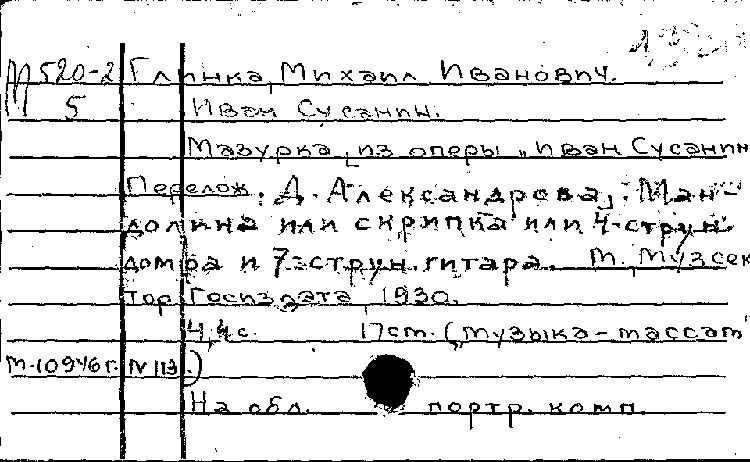 М 520-2 Глинка, Михаил Иванович.
5 Иван Сусанин.
Мазурка [из оперы „Иван Сусанин
Перелож. Д. Александрова]. Ман-
долина или скрипка или 4-струн.
домра и 7-струн. гитара. М., Музсек
тор Госиздата, 1930.
4, 4 с. 17 cm. („Музыка-массам"
М-10946 г. N 113.)
На обл. портр. комп.